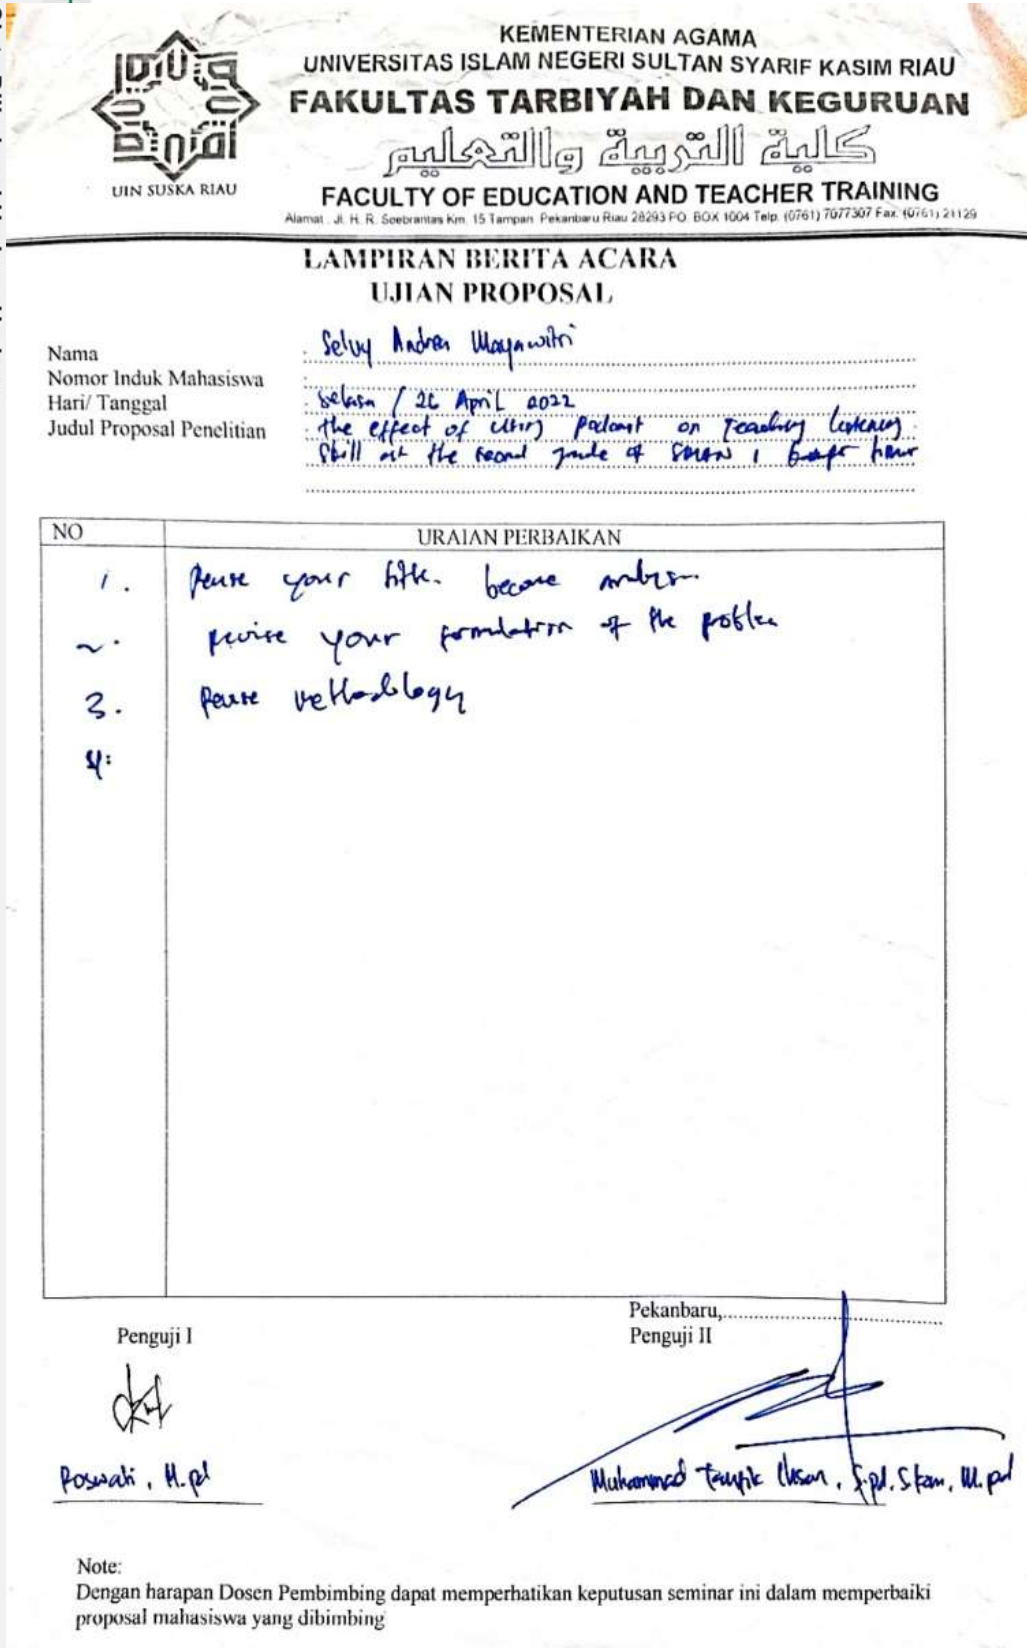 KEMENTERIAN AGAMA
UNIVERSITAS ISLAM NEGERI SULTAN SYARIF KASIM RIAU
FAKULTAS TARBIYAH DAN KEGURUAN
كلية التربية والتعليم
FACULTY OF EDUCATION AND TEACHER TRAINING
UIN SUSKA RIAU
Alamat : Jl. H. R. Soebrantas Km. 15 Tampan Pekanbaru Riau 28293 PO. BOX 1004 Telp. (0761) 7077307 Fax. (0761) 21129
LAMPIRAN BERITA ACARA
UJIAN PROPOSAL
Nama : Selvy Andrea
Nomor Induk Mahasiswa :
Hari/ Tanggal : Selasa / 26 April 2022
Judul Proposal Penelitian : the effect of using podcast on teaching listening
skill at the second grade of SMAN 1
NO URAIAN PERBAIKAN
1. Revise your title. become
2. revise your formulation of the problem
3. Revise Methodology
4.
Pekanbaru,
Penguji I Penguji II
Roswati, M.pd Muhammad Taufik Ihsan, S.pd. M.pd
Note:
Dengan harapan Dosen Pembimbing dapat memperhatikan keputusan seminar ini dalam memperbaiki
proposal mahasiswa yang dibimbing